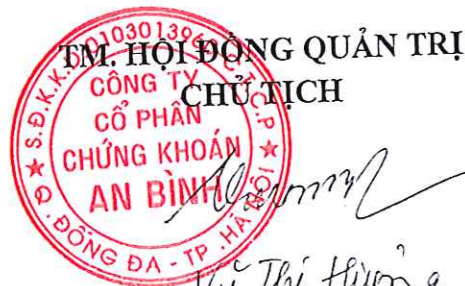 TM. HỘI ĐỒNG QUẢN TRỊ
CHỦ TỊCH
CÔNG TY
CỔ PHẦN
CHỨNG KHOÁN
AN BÌNH
Q. ĐỐNG ĐA - TP. HÀ NỘI
Vũ Thị Hương